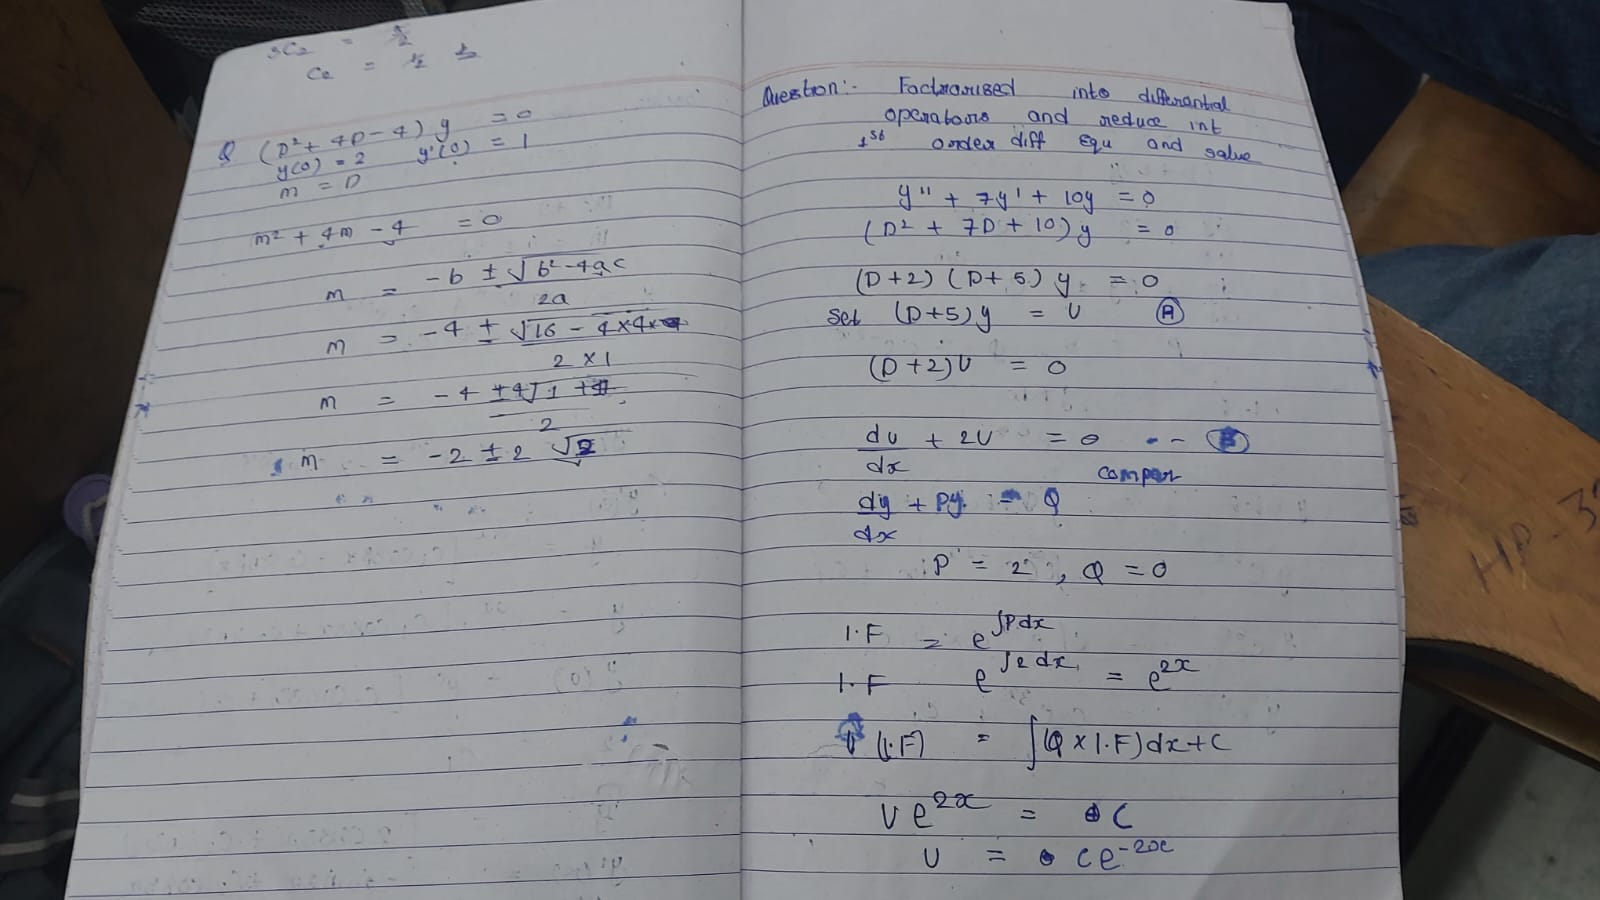 3C2 =
C2 = 1/2
Q (D² + 4D - 4) y = 0
y(0) = 2 y'(0) = 1
m = D
m² + 4m - 4 = 0
m = -b ± √b² - 4ac
2a
m = -4 ± √16 - 4×4×
2 × 1
m = -4 ± 4√1 +
2
m = -2 ± 2 √2
Question:- Factrorised into differential
operators and reduce int
1st order diff equ and salve
y'' + 7y' + 10y = 0
(D² + 7D + 10) y = 0
(D+2) (D+5) y = 0
Set (D+5) y = U (A)
(D+2)U = 0
du/dx + 2U = 0 -- (B)
compar
dy/dx + Py = Q
P = 2, Q = 0
I.F = e^∫Pdx
I.F e^∫2dx = e^2x
U (I.F) = ∫(Q × I.F) dx + C
U e^2x = C
U = C e^-2x
HP-3